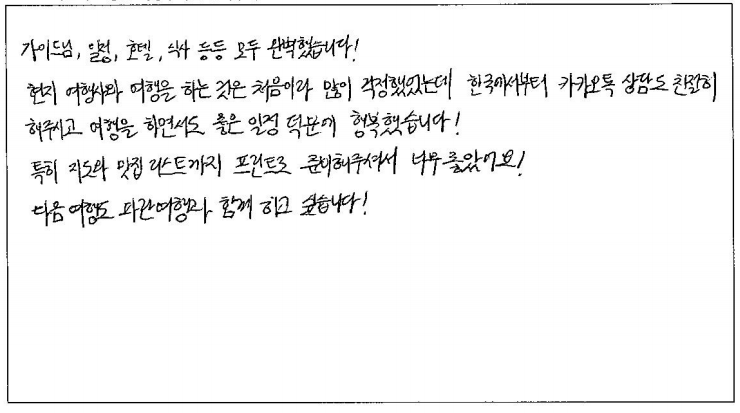 가이드님, 일정, 호텔, 식사 등등 모두 완벽했습니다!
현지 여행사와 여행을 하는 것은 처음이라 많이 걱정했었는데 한국에서부터 카카오톡 상담도 친절히
해주시고 여행을 하면서도 좋은 일정 덕분에 행복했습니다!
특히 지도와 맛집 리스트까지 프린트로 준비해주셔서 너무 좋았어요!
다음 여행도 파란여행과 함께 하고 싶습니다!